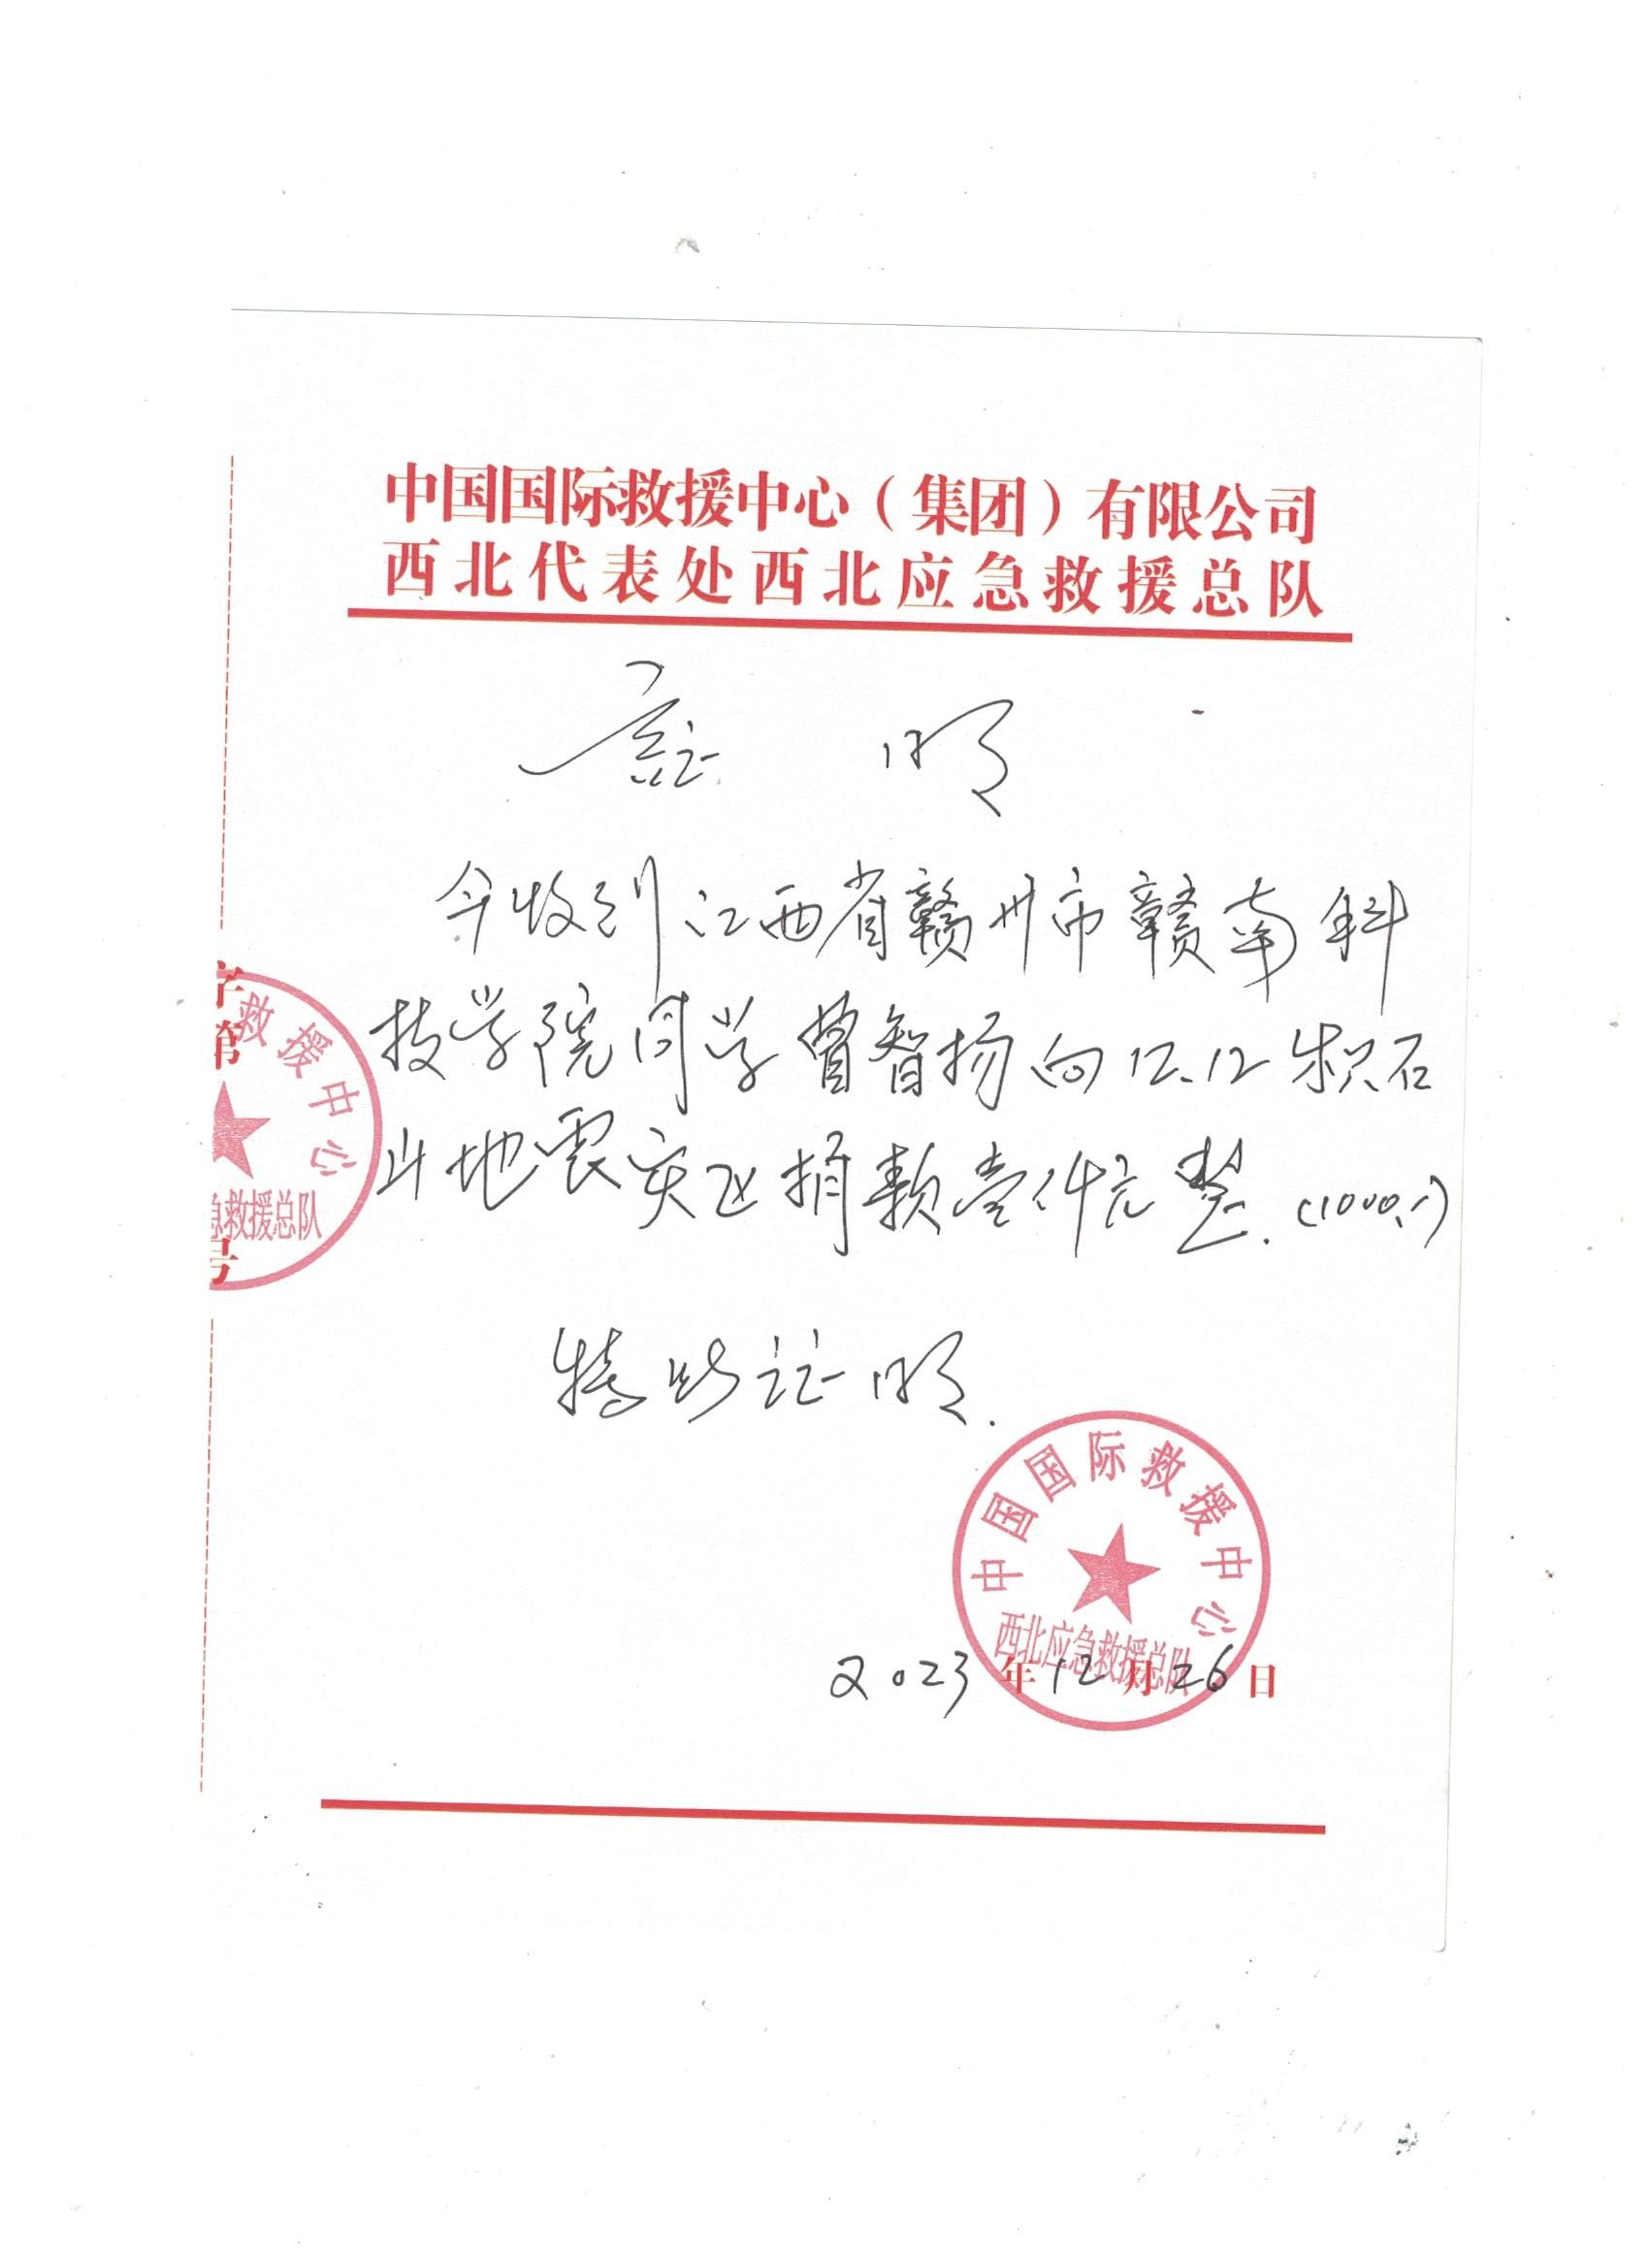 中国国际救援中心（集团）有限公司
西北代表处西北应急救援总队
证 明
今收到江西省赣州市赣南科
技学院同学曾智扬向12.12积石
山地震灾区捐款壹仟元整.(1000.-)
特此证明.
字
第
号
救援中心
急救援总队
中国国际救援中心
西北应急救援总队
2023年12月26日